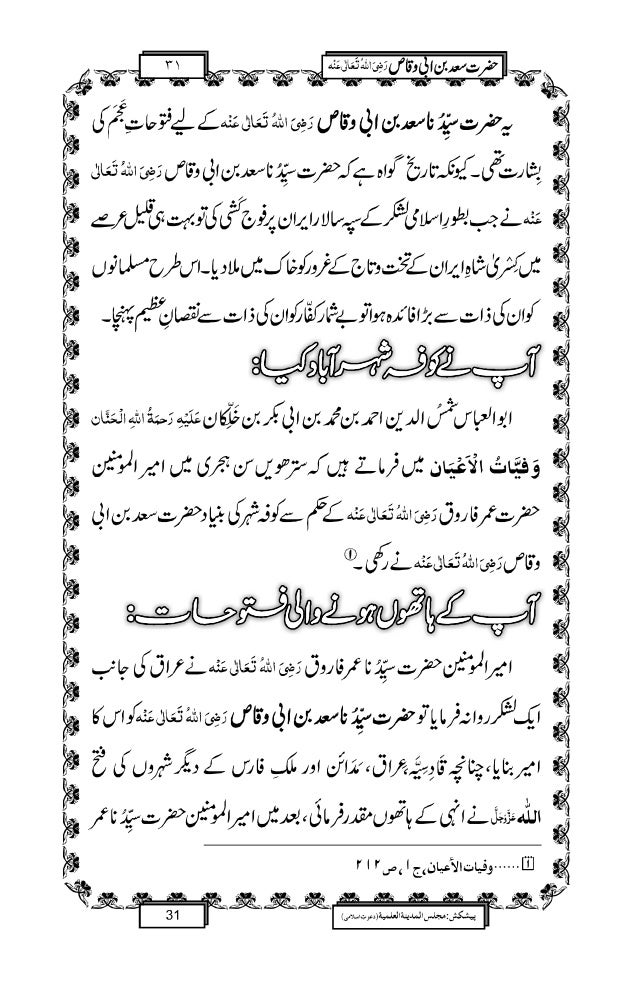 حضرت سعد بن ابی وقاص رَضِیَ اللہُ تَعَالٰی عَنْہ
۳۱
یہ حضرت سیِّدُنا سعد بن ابی وقاص رَضِیَ اللہُ تَعَالٰی عَنْہ کے لیے فتوحاتِ عَجَم کی
بِشارت تھی۔ کیونکہ تاریخ گواہ ہے کہ حضرت سیِّدُنا سعد بن ابی وقاص رَضِیَ اللہُ تَعَالٰی
عَنْہ نے جب بطورِ اسلامی لشکر کے سپہ سالار ایران پر فوج کَشی کی تو بہت ہی قلیل عرصے
میں کِسْریٰ شاہِ ایران کے تخت و تاج کے غرور کو خاک میں ملا دیا۔ اس طرح مسلمانوں
کو ان کی ذات سے بڑا فائدہ ہوا تو بے شمار کفّار کو ان کی ذات سے نقصانِ عظیم پہنچا۔
آپ نے کوفہ شہر آباد کیا:
ابو العباس شمسُ الدین احمد بن محمد بن ابی بکر بن خَلِّکان عَلَیْہِ رَحمَۃُ اللہِ الْحَنَّان
وَفِیَّاتُ الْاَعْیَان میں فرماتے ہیں کہ سترھویں سن ہجری میں امیر المومنین
حضرت عمر فاروق رَضِیَ اللہُ تَعَالٰی عَنْہ کے حکم سے کوفہ شہر کی بنیاد حضرت سعد بن ابی
وقاص رَضِیَ اللہُ تَعَالٰی عَنْہ نے رکھی۔ ①
آپ کے ہاتھوں ہونے والی فتوحات:
امیر المومنین حضرت سیِّدُنا عمر فاروق رَضِیَ اللہُ تَعَالٰی عَنْہ نے عراق کی جانب
ایک لشکر روانہ فرمایا تو حضرت سیِّدُنا سعد بن ابی وقاص رَضِیَ اللہُ تَعَالٰی عَنْہ کو اس کا
امیر بنایا، چنانچہ قَادِسِیَّہ، عراق، مَدَائن اور ملکِ فارس کے دیگر شہروں کی فتح
اللہ عَزَّوَجَلَّ نے انہی کے ہاتھوں مقدر فرمائی، بعد میں امیر المومنین حضرت سیِّدُنا عمر
۱……وفیات الأعیان، ج۱، ص۲۱۲
پیشکش: مجلس المدینة العلمیة (دعوتِ اسلامی)
31